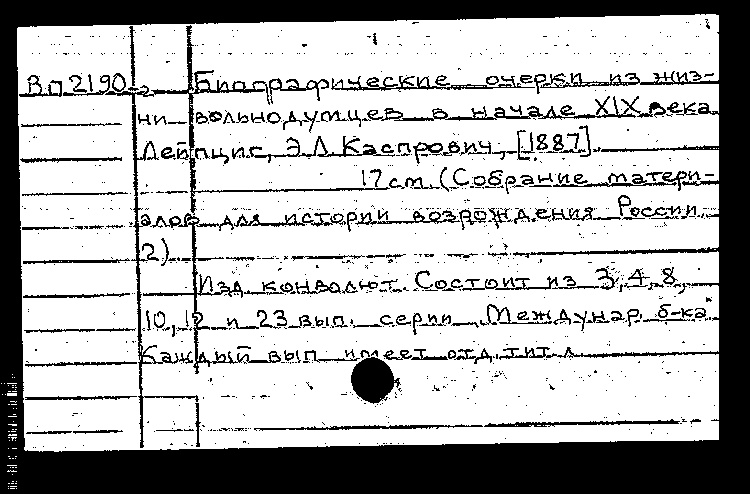 Вп2190-2 Биографические очерки из жиз-
ни вольнодумцев в начале XIX века
Лейпциг, Э.Л.Каспрович, [1887].
17см. (Собрание матери-
алов для истории возрождения России.
2)
Изд. конволют. Состоит из 3, 4, 8,
10, 12 и 23 вып. серии „Междунар. б-ка"
Каждый вып. имеет отд. тит. л.